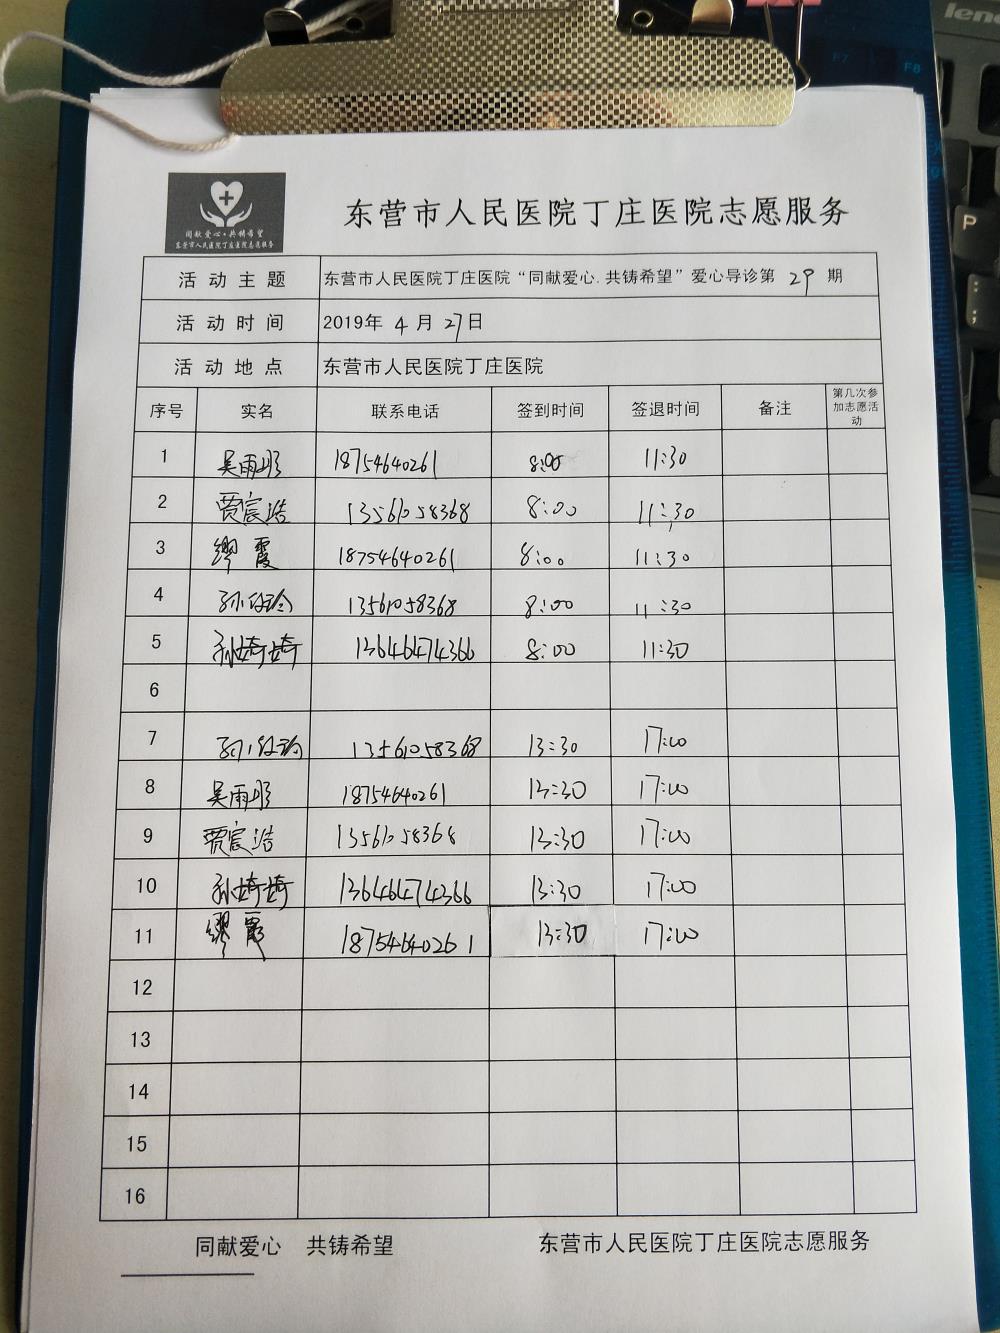 leno
F7 F8
P
同献爱心·共铸希望
东营市人民医院丁庄医院志愿服务
东营市人民医院丁庄医院志愿服务
活动主题 东营市人民医院丁庄医院“同献爱心.共铸希望”爱心导诊第 29 期
活动时间 2019年 4 月 27日
活动地点 东营市人民医院丁庄医院
序号 实名 联系电话 签到时间 签退时间 备注 第几次参加志愿活动
1 吴雨彤 18754640261 8:00 11:30
2 贾宸浩 13561058368 8:00 11:30
3 缪霞 18754640261 8:00 11:30
4 孙 13561058368 8:00 11:30
5 孙婷婷 13646474366 8:00 11:30
6
7 孙 13561058368 13:30 17:00
8 吴雨彤 18754640261 13:30 17:00
9 贾宸浩 13561058368 13:30 17:00
10 孙婷婷 13646474366 13:30 17:00
11 缪霞 18754640261 13:30 17:00
12
13
14
15
16
同献爱心 共铸希望 东营市人民医院丁庄医院志愿服务